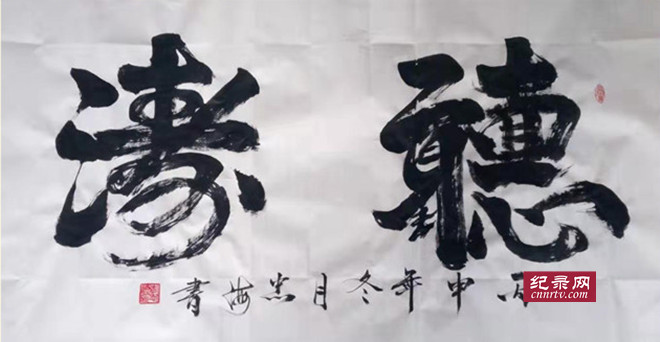 聽濤
丙申年冬月忠海書
纪录网
cnnrtv.com